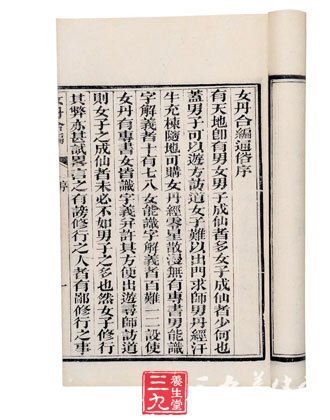 女丹合編通俗序
有天地即有男女男子成仙者多女子成仙者少何也
蓋男子可以遊方訪道女子難以出門求師男丹經汗
牛充棟隨地可購女丹經零星散漫無有專書男能識
字解義者十有七八女能識字解義者百難一二設使
女丹有專書女皆識字義并許其方便出遊尋師訪道
則女子之成仙者未必不如男子之多也然女子修行
其弊亦甚試畧言之有謗修行之人者有鄙修行之事
女丹合編
序
一
養生堂
三九